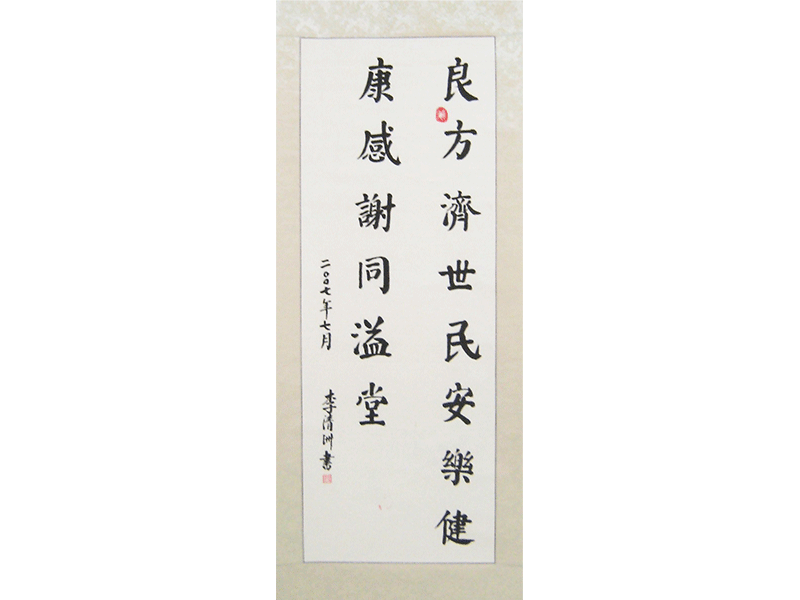 良方濟世民安樂健
康感謝同溢堂
二〇〇七年七月
李清洲書